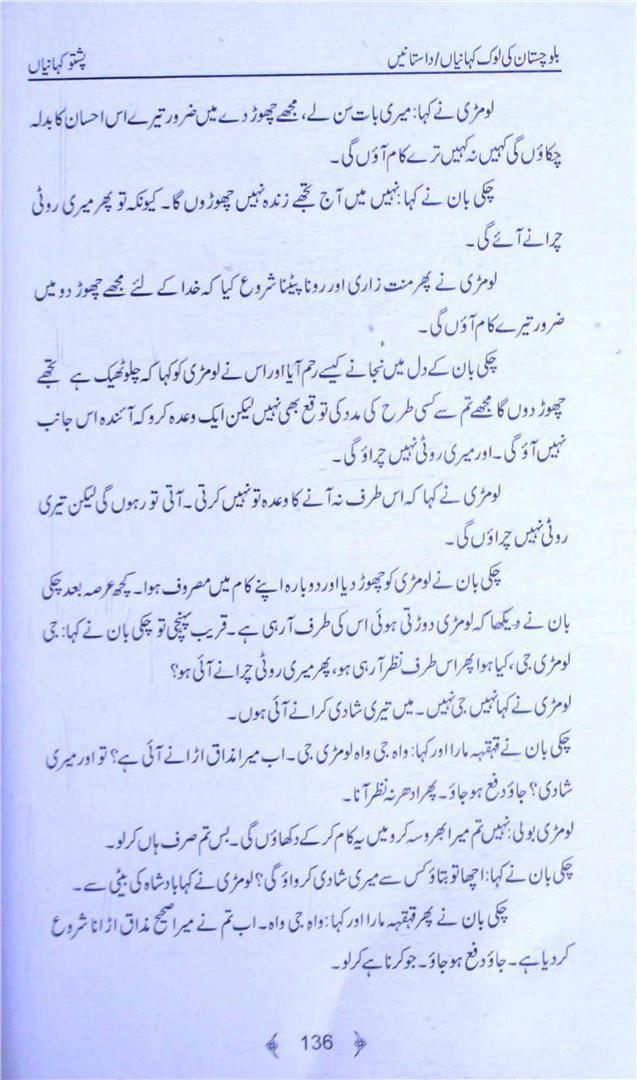 بلوچستان کی لوک کہانیاں/داستانیں
پشتو کہانیاں
لومڑی نے کہا: میری بات سن لے، مجھے چھوڑ دے میں ضرور تیرے اس احسان کا بدلہ
چکاؤں گی کہیں نہ کہیں ترے کام آؤں گی۔
چکی بان نے کہا: نہیں میں آج تجھے زندہ نہیں چھوڑوں گا۔ کیونکہ تو پھر میری روٹی
چرانے آئے گی۔
لومڑی نے پھر منت زاری اور رونا پیٹنا شروع کیا کہ خدا کے لئے مجھے چھوڑ دو میں
ضرور تیرے کام آؤں گی۔
چکی بان کے دل میں نجانے کیسے رحم آیا اور اس نے لومڑی کو کہا کہ چلو ٹھیک ہے تجھے
چھوڑ دوں گا مجھے تم سے کسی طرح کی مدد کی توقع بھی نہیں لیکن ایک وعدہ کرو کہ آئندہ اس جانب
نہیں آؤ گی۔ اور میری روٹی نہیں چراؤ گی۔
لومڑی نے کہا کہ اس طرف نہ آنے کا وعدہ تو نہیں کرتی۔ آتی تو رہوں گی لیکن تیری
روٹی نہیں چراؤں گی۔
چکی بان نے لومڑی کو چھوڑ دیا اور دوبارہ اپنے کام میں مصروف ہوا۔ کچھ عرصہ بعد چکی
بان نے دیکھا کہ لومڑی دوڑتی ہوئی اس کی طرف آ رہی ہے۔ قریب پہنچی تو چکی بان نے کہا: جی
لومڑی جی، کیا ہوا پھر اس طرف نظر آ رہی ہو، پھر میری روٹی چرانے آئی ہو؟
لومڑی نے کہا نہیں جی نہیں۔ میں تیری شادی کرانے آئی ہوں۔
چکی بان نے قہقہہ مارا اور کہا: واہ جی واہ لومڑی جی۔ اب میرا مذاق اڑانے آئی ہے؟ تو اور میری
شادی؟ جاؤ دفع ہو جاؤ۔ پھر ادھر نہ نظر آنا۔
لومڑی بولی: نہیں تم میرا بھروسہ کرو میں یہ کام کر کے دکھاؤں گی۔ بس تم صرف ہاں کر لو۔
چکی بان نے کہا: اچھا تو بتاؤ کس سے میری شادی کرواؤ گی؟ لومڑی نے کہا بادشاہ کی بیٹی سے۔
چکی بان نے پھر قہقہہ مارا اور کہا: واہ جی واہ۔ اب تم نے میرا صحیح مذاق اڑانا شروع
کر دیا ہے۔ جاؤ دفع ہو جاؤ۔ جو کرنا ہے کر لو۔
136